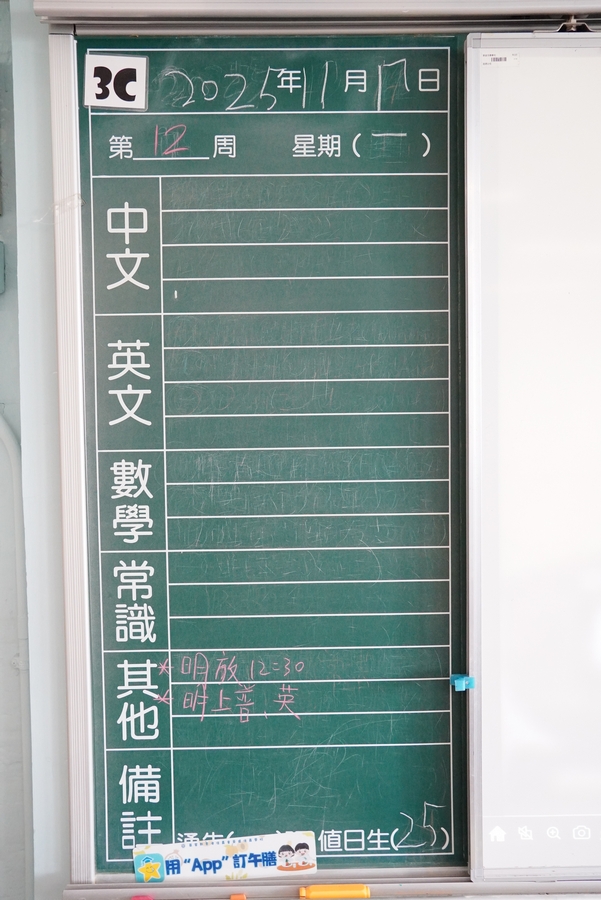 3C 2025年11月17日
第12周 星期(一)
中文
英文
數學
常識
其他
*明放12:30
*明上普、英
備註
通告( 值日生(25)
用“App”訂午膳